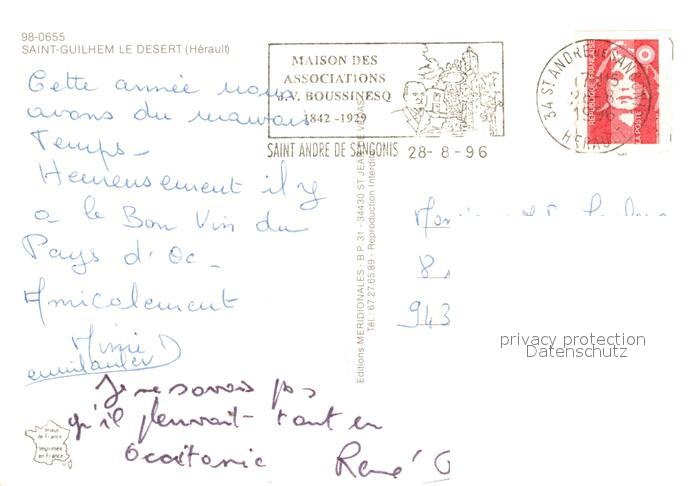 98-0655
SAINT-GUILHEM LE DESERT (Hérault)
MAISON DES
ASSOCIATIONS
J.V. BOUSSINESQ
1842 -1929
SAINT ANDRE DE SANGONIS 28- 8 -96
34 ST ANDRE DE SANGONIS
1996
HERAULT
REPUBLIQUE FRANÇAISE
LA POSTE
Cette année nous
avons du mauvais
Temps -
Heureusement il y
a le Bon Vin du
Pays d'Oc -
Amicalement
Mimi
Je ne savais pas
qu'il pleuvait tant en
Occitanie René
Editions MERIDIONALES - B.P. 31 - 34430 ST JEAN DE VEDAS
Tél.: 67.27.65.89 - Reproduction Interdite
8
943
privacy protection
Datenschutz
Imprimée
en France